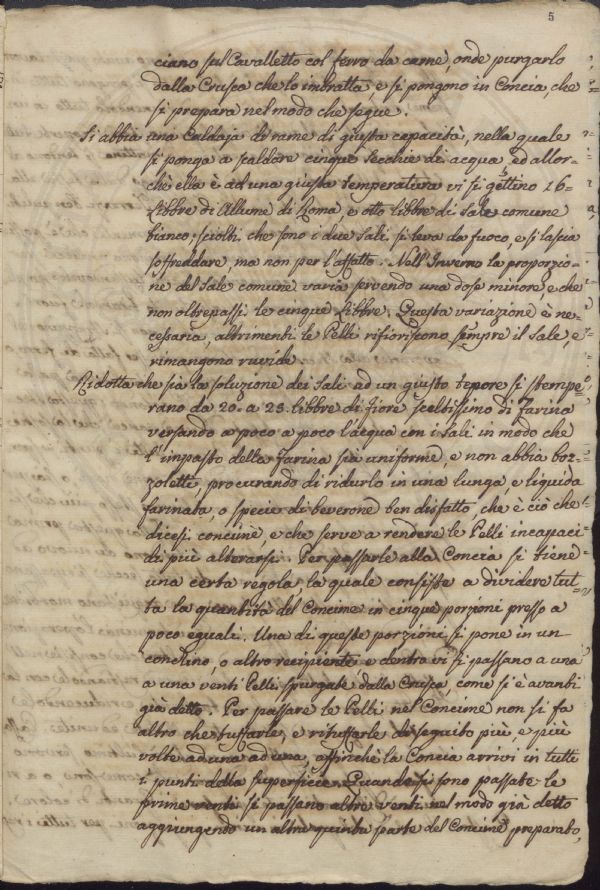 5
ciano sul Cavalletto col ferro da carne, onde purgarlo
dalla Crusca che lo imbratta, e si pongono in Concia, che
si prepara nel modo che segue.
Si abbia una Caldaja di rame di giusta capacità, nella quale
si ponga a scaldare cinque Secchie di acqua, ed allor-
chè ella è ad una giusta temperatura vi si gettino 16=
Libbre di Allume di Roma, e otto libbre di Sale comune
bianco; sciolti che sono i due Sali si leva da fuoco, e si lascia
soffreddare, ma non per l'affatto. Nell'Inverno la proporzio=
ne del Sale comune varia servendo una dose minore, e che
non oltrepassi le cinque Libbre. Questa variazione è ne=
cessaria, altrimenti le Pelli rifioriscono sempre il Sale, e
rimangono ruvide.
Ridotta che sia la soluzione dei Sali ad un giusto tepore si stempe=
rano da 20. a 25. libbre di fiore sceltissimo di Farina
versando a poco a poco l'acqua con i Sali in modo che
l'impasto della Farina sia uniforme, e non abbia boz=
zoletti, procurando di ridurlo in una lunga, e liquida
farinata, o specie di beverone ben disfatto, che è ciò che
dicesi concime, e che serve a rendere le Pelli incapaci
di più alterarsi. Per passarle alla Concia si tiene
una certa regola, la quale consiste a dividere tut=
ta la quantità del Concime in cinque porzioni presso a
poco eguali. Una di queste porzioni si pone in un
conchino, o altro recipiente, e dentro vi si passano a una
a una venti Pelli spurgate dalla Crusca, come si è avanti
già detto. Per passare le Pelli nel Concime non si fa
altro che tuffarle, e rituffarle di seguito più, e più
volte ad una ad una, affinchè la Concia arrivi in tutti
i punti della superficie. Quando si sono passate le
prime venti si passano altre venti nel modo già detto
aggiungendo un altra quinta parte del Concime preparato,